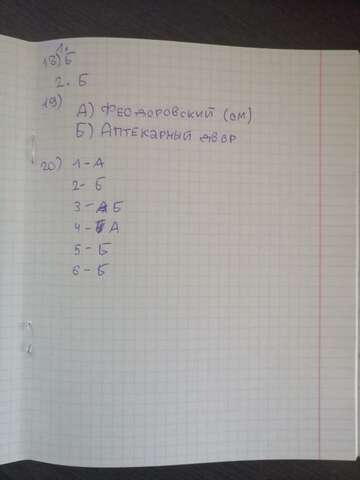 18) 1. Б
2. Б
19)
А) Феодоровский (см)
Б) Аптекарный двор
20) 1 - А
2 - Б
3 - А Б
4 - Б А
5 - Б
6 - Б